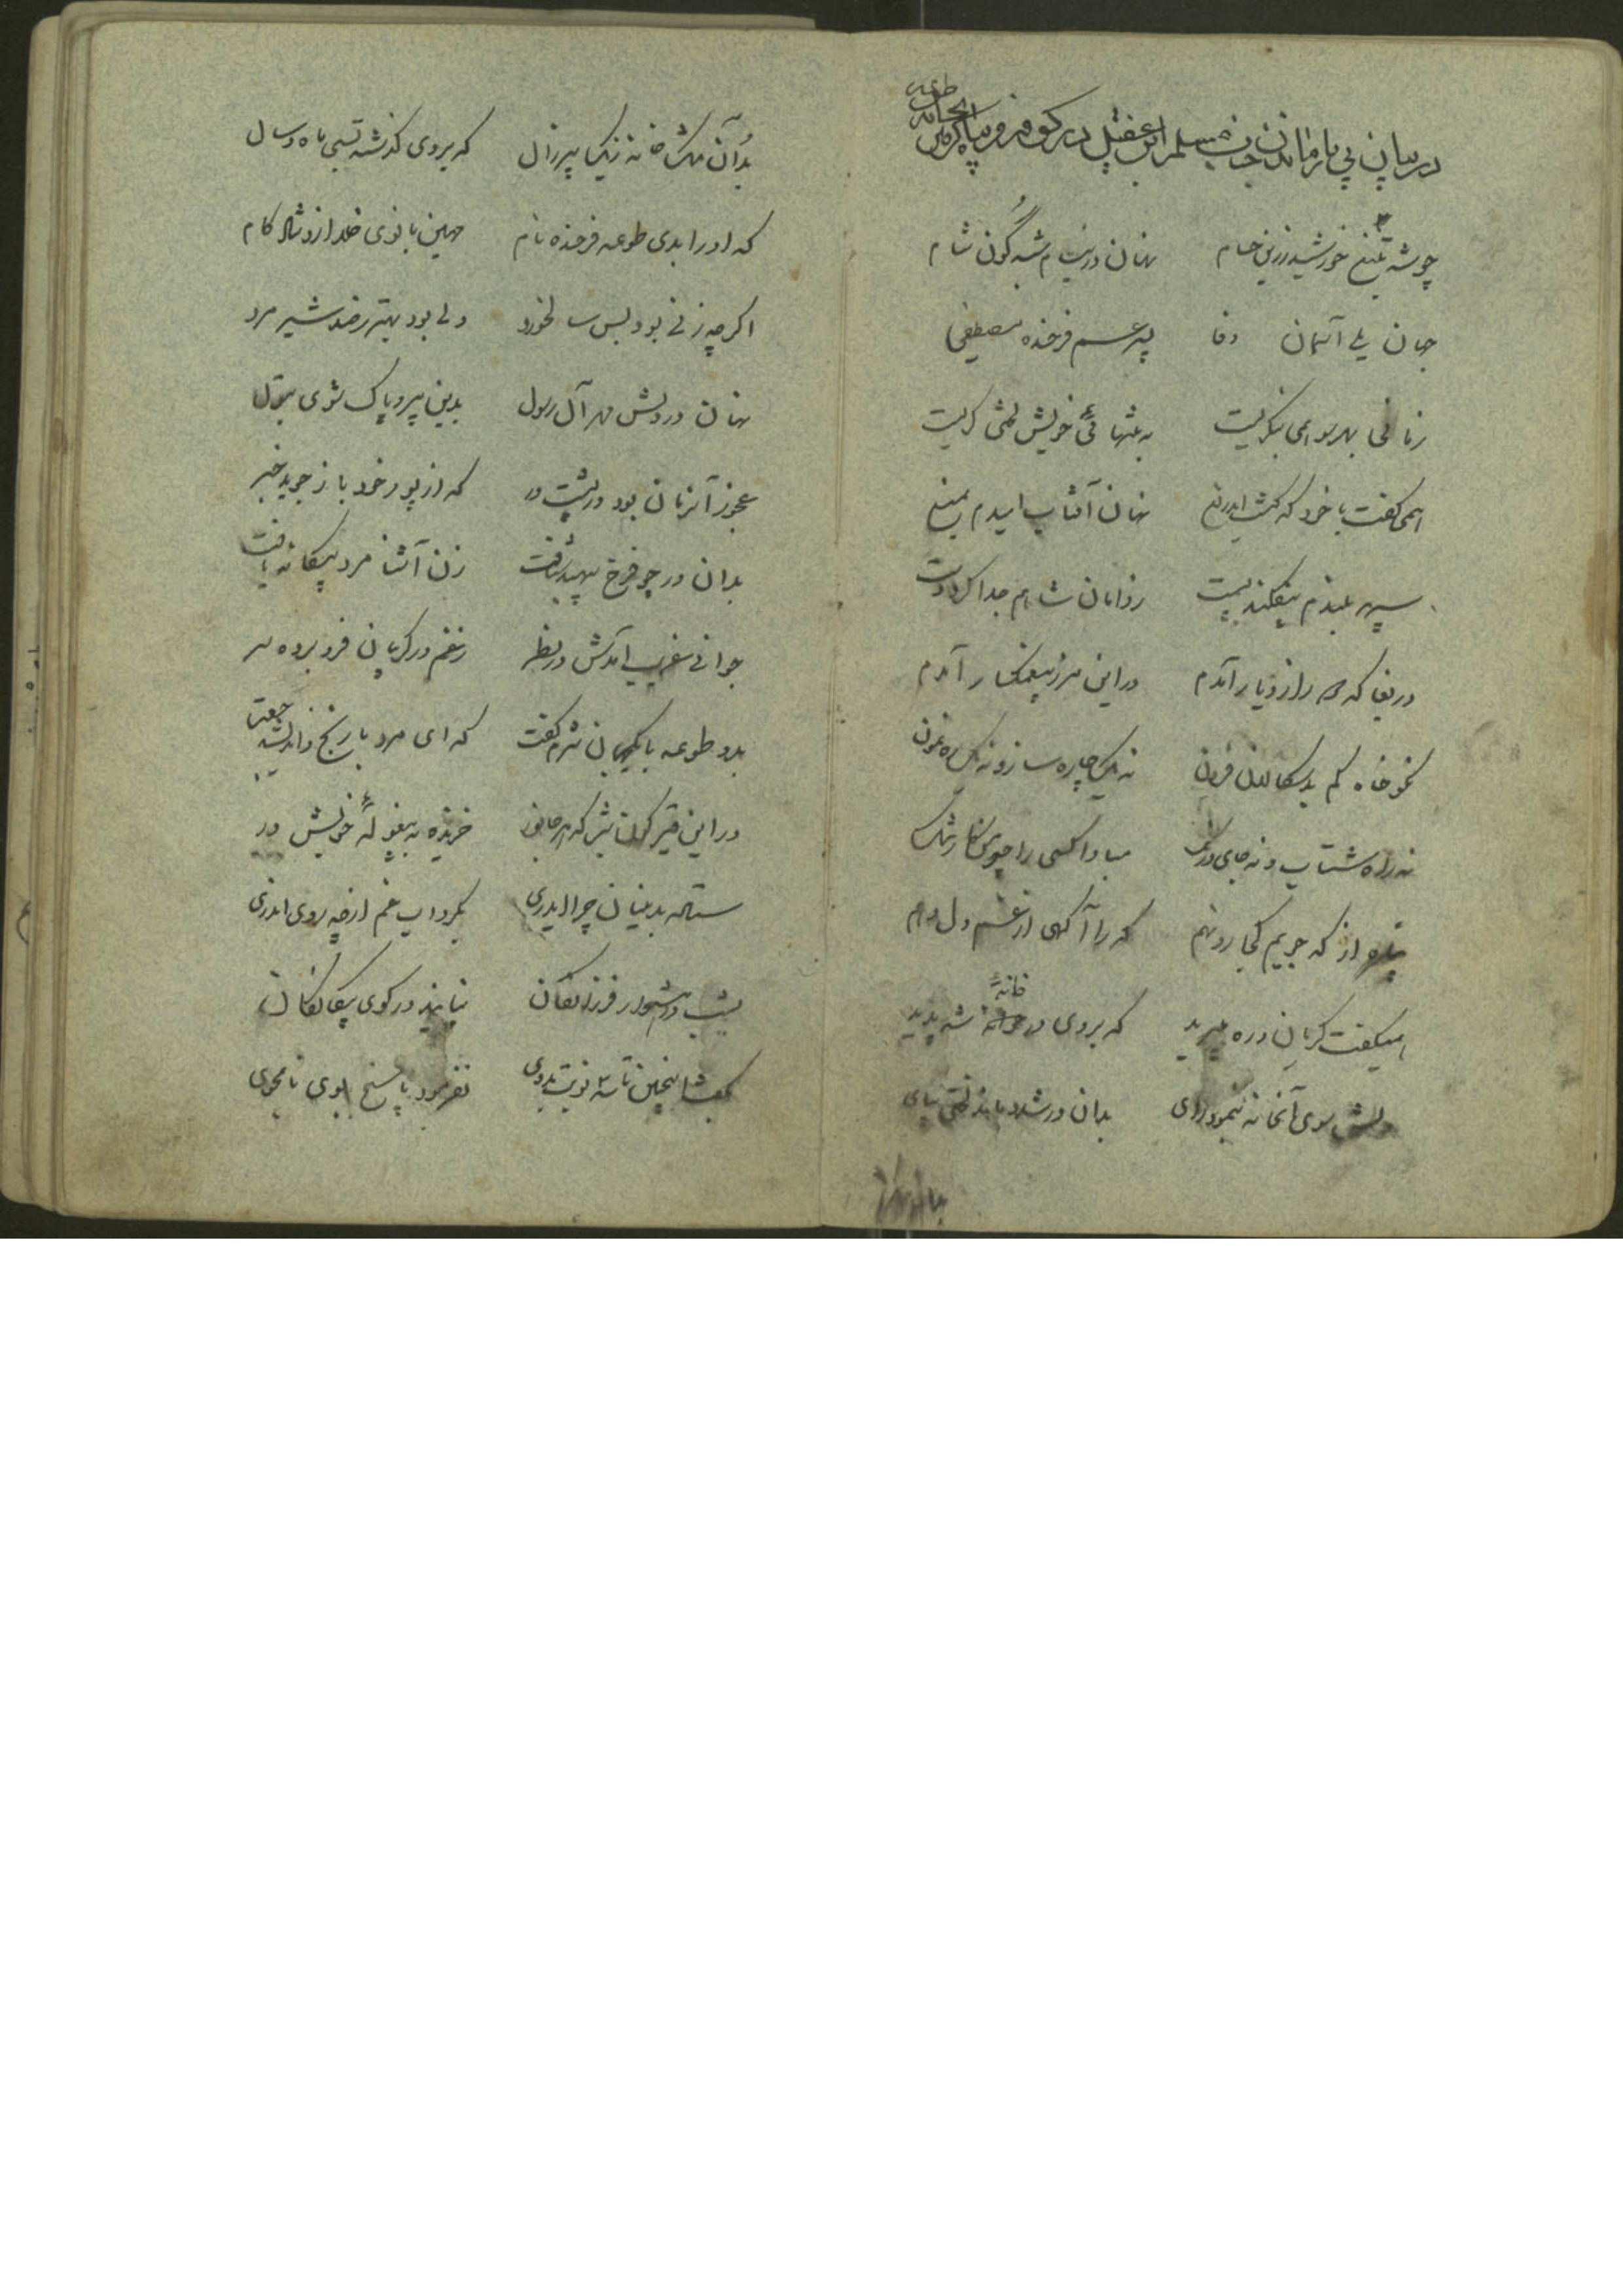 در بیان بی یار ماندن جناب مسلم ابن عقیل در کوفه و
طوعه
چو شد تیغ خورشید زرین حسام نهان در نیام شبه گون شام
جهان یلی آسمان وفا پسر عم فرخنده مصطفی
زمانی بهر سو همی بنگریست به تنهائی خویش لختی گریست
همی گفت با خود که گشت ایدریغ نهان آفتاب امیدم بمیغ
سپهر بلندم بیفکند پست ز دامان شاهم جدا کرد دست
دریغا که دور از دیار آمدم در این مرز بی غمگسار آمدم
نکو خواه کم بدسگالان فزون نه یک چاره ساز و نه یک رهنمون
نه راه شتاب و نه جای درنگ مبادا کسی را چو من کار تنگ
چاره از که جویم کجا رو نهم که را آگهی از غم دل دهم
همیگفت گریان و ره میبرید که بر وی در خانهٔ شد پدید
دلش سوی آنخانه بنمود روی بدان در شد و ماند لختی بپای
بدان اندر آن خانه یک پیر زال که بر وی گذشته بسی ماه و سال
که او را بدی طوعه فرخنده نام مهین بانوی خلد ازو شادکام
اگر چه زنی بود بس سالخورد ولی بود بهتر ز صد شیر مرد
نهان در دلش مهر آل رسول بدین پیرو پاک شوی بتول
عجوز آنزمان بود در پشت در که از پور خود باز جوید خبر
بدان در چو فرخ سپهبد شتافت زن آشنا مرد بیگانه یافت
جوانی غریب آمدش در نظر ز غم در گریبان فرو برده سر
بدو طوعه با یکجهان شرم گفت که ای مرد با رنج و اندیشه جفت
در این قیرگون شب که هر جانور خزیده به بیغولهٔ خویش در
ستاده بدینسان چرا ایدری بگرداب غم از چه روی اندری
بشب در شود فرزانگان نیایند در کوی بیگانگان
بگفت اینچنین تا سه نوبت بدوی نفرمود پاسخ بدوی نامجوی